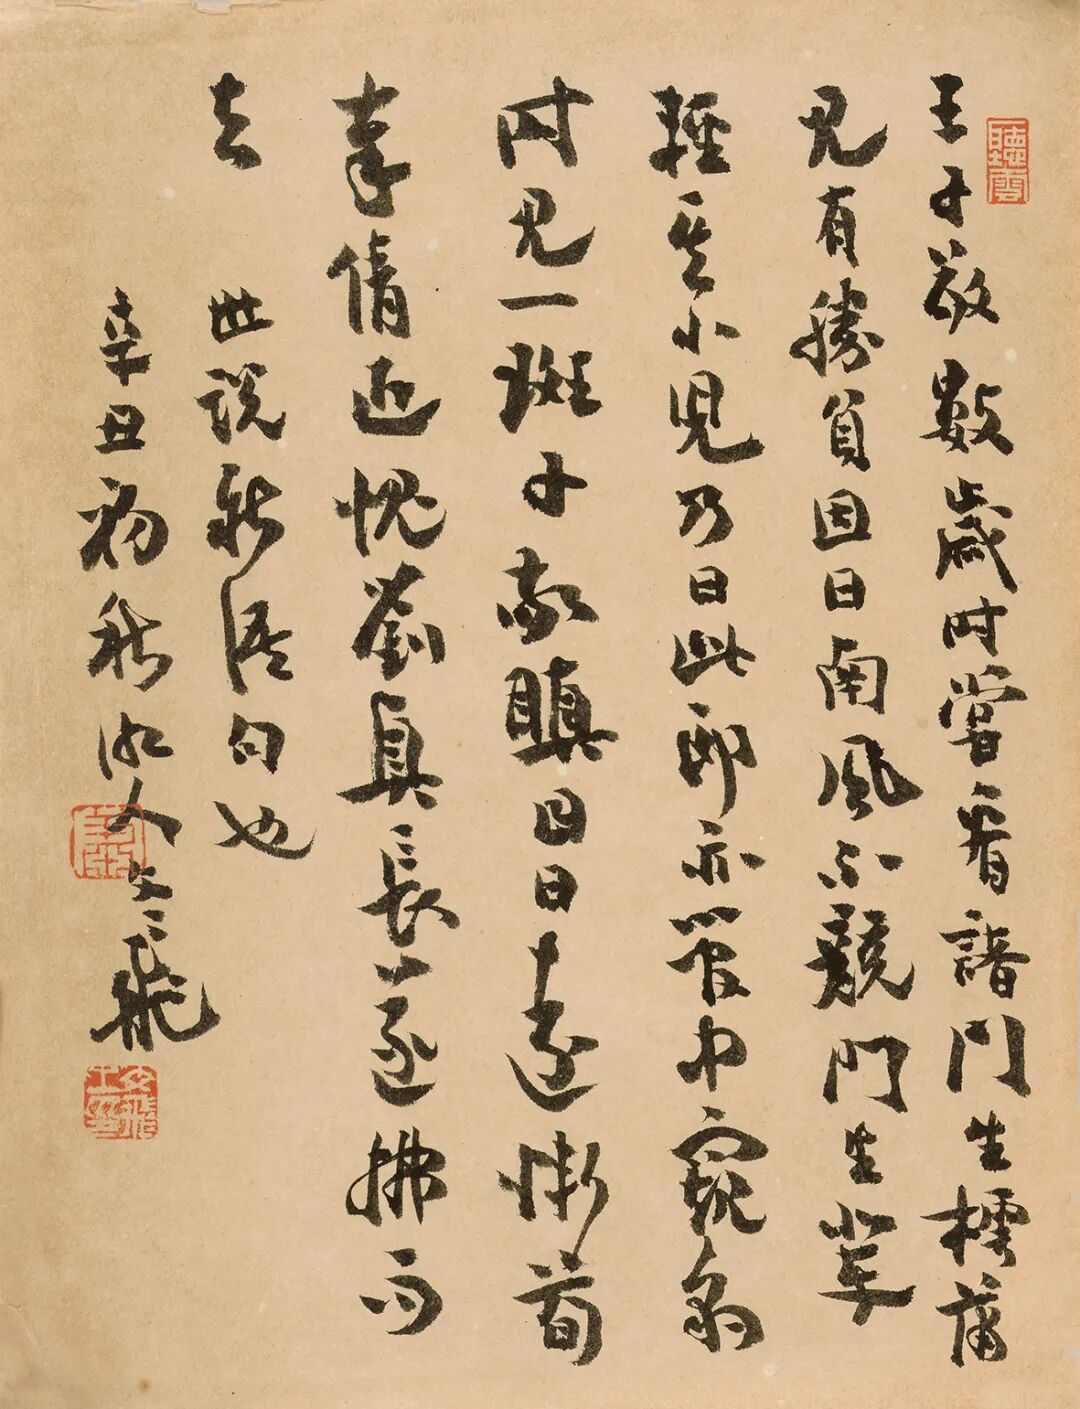 王子敬數歲時嘗看諸門生樗蒲
見有勝負因曰南風不競門生輩
輕其小兒乃曰此郎亦管中窺豹
時見一斑子敬瞋目曰遠慚荀
奉倩近愧劉真長遂拂而
去 世說新語句也
辛丑初秋
聽雲